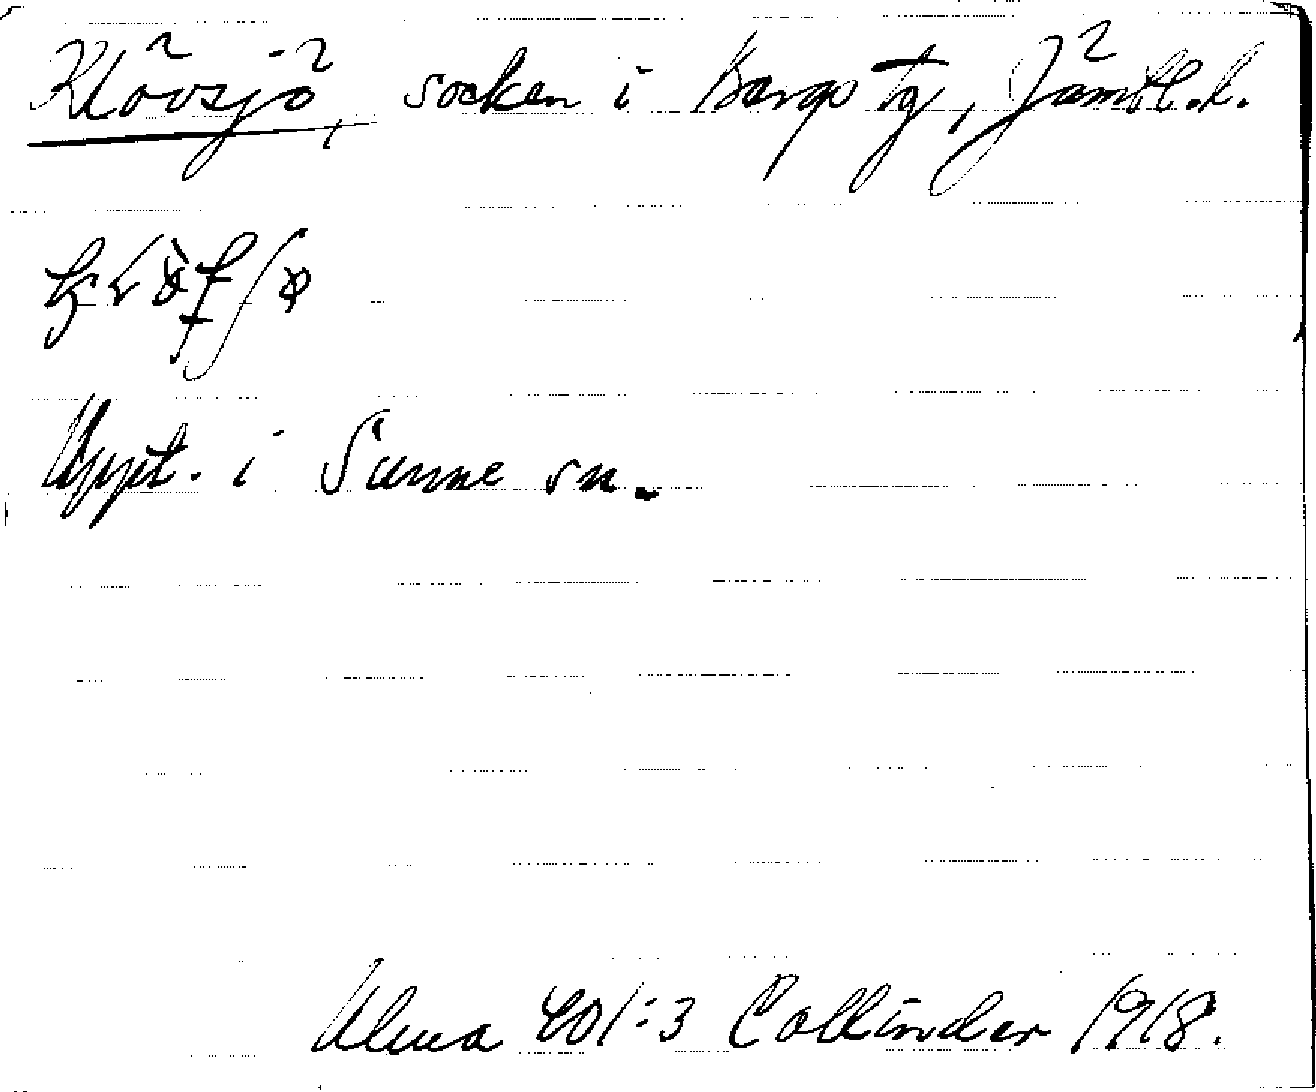 Klövsjö, socken i Bergs tg, Jämtl. l.
Uppt. i Sunne sn.
Ulma 401:3 Collinder 1918.